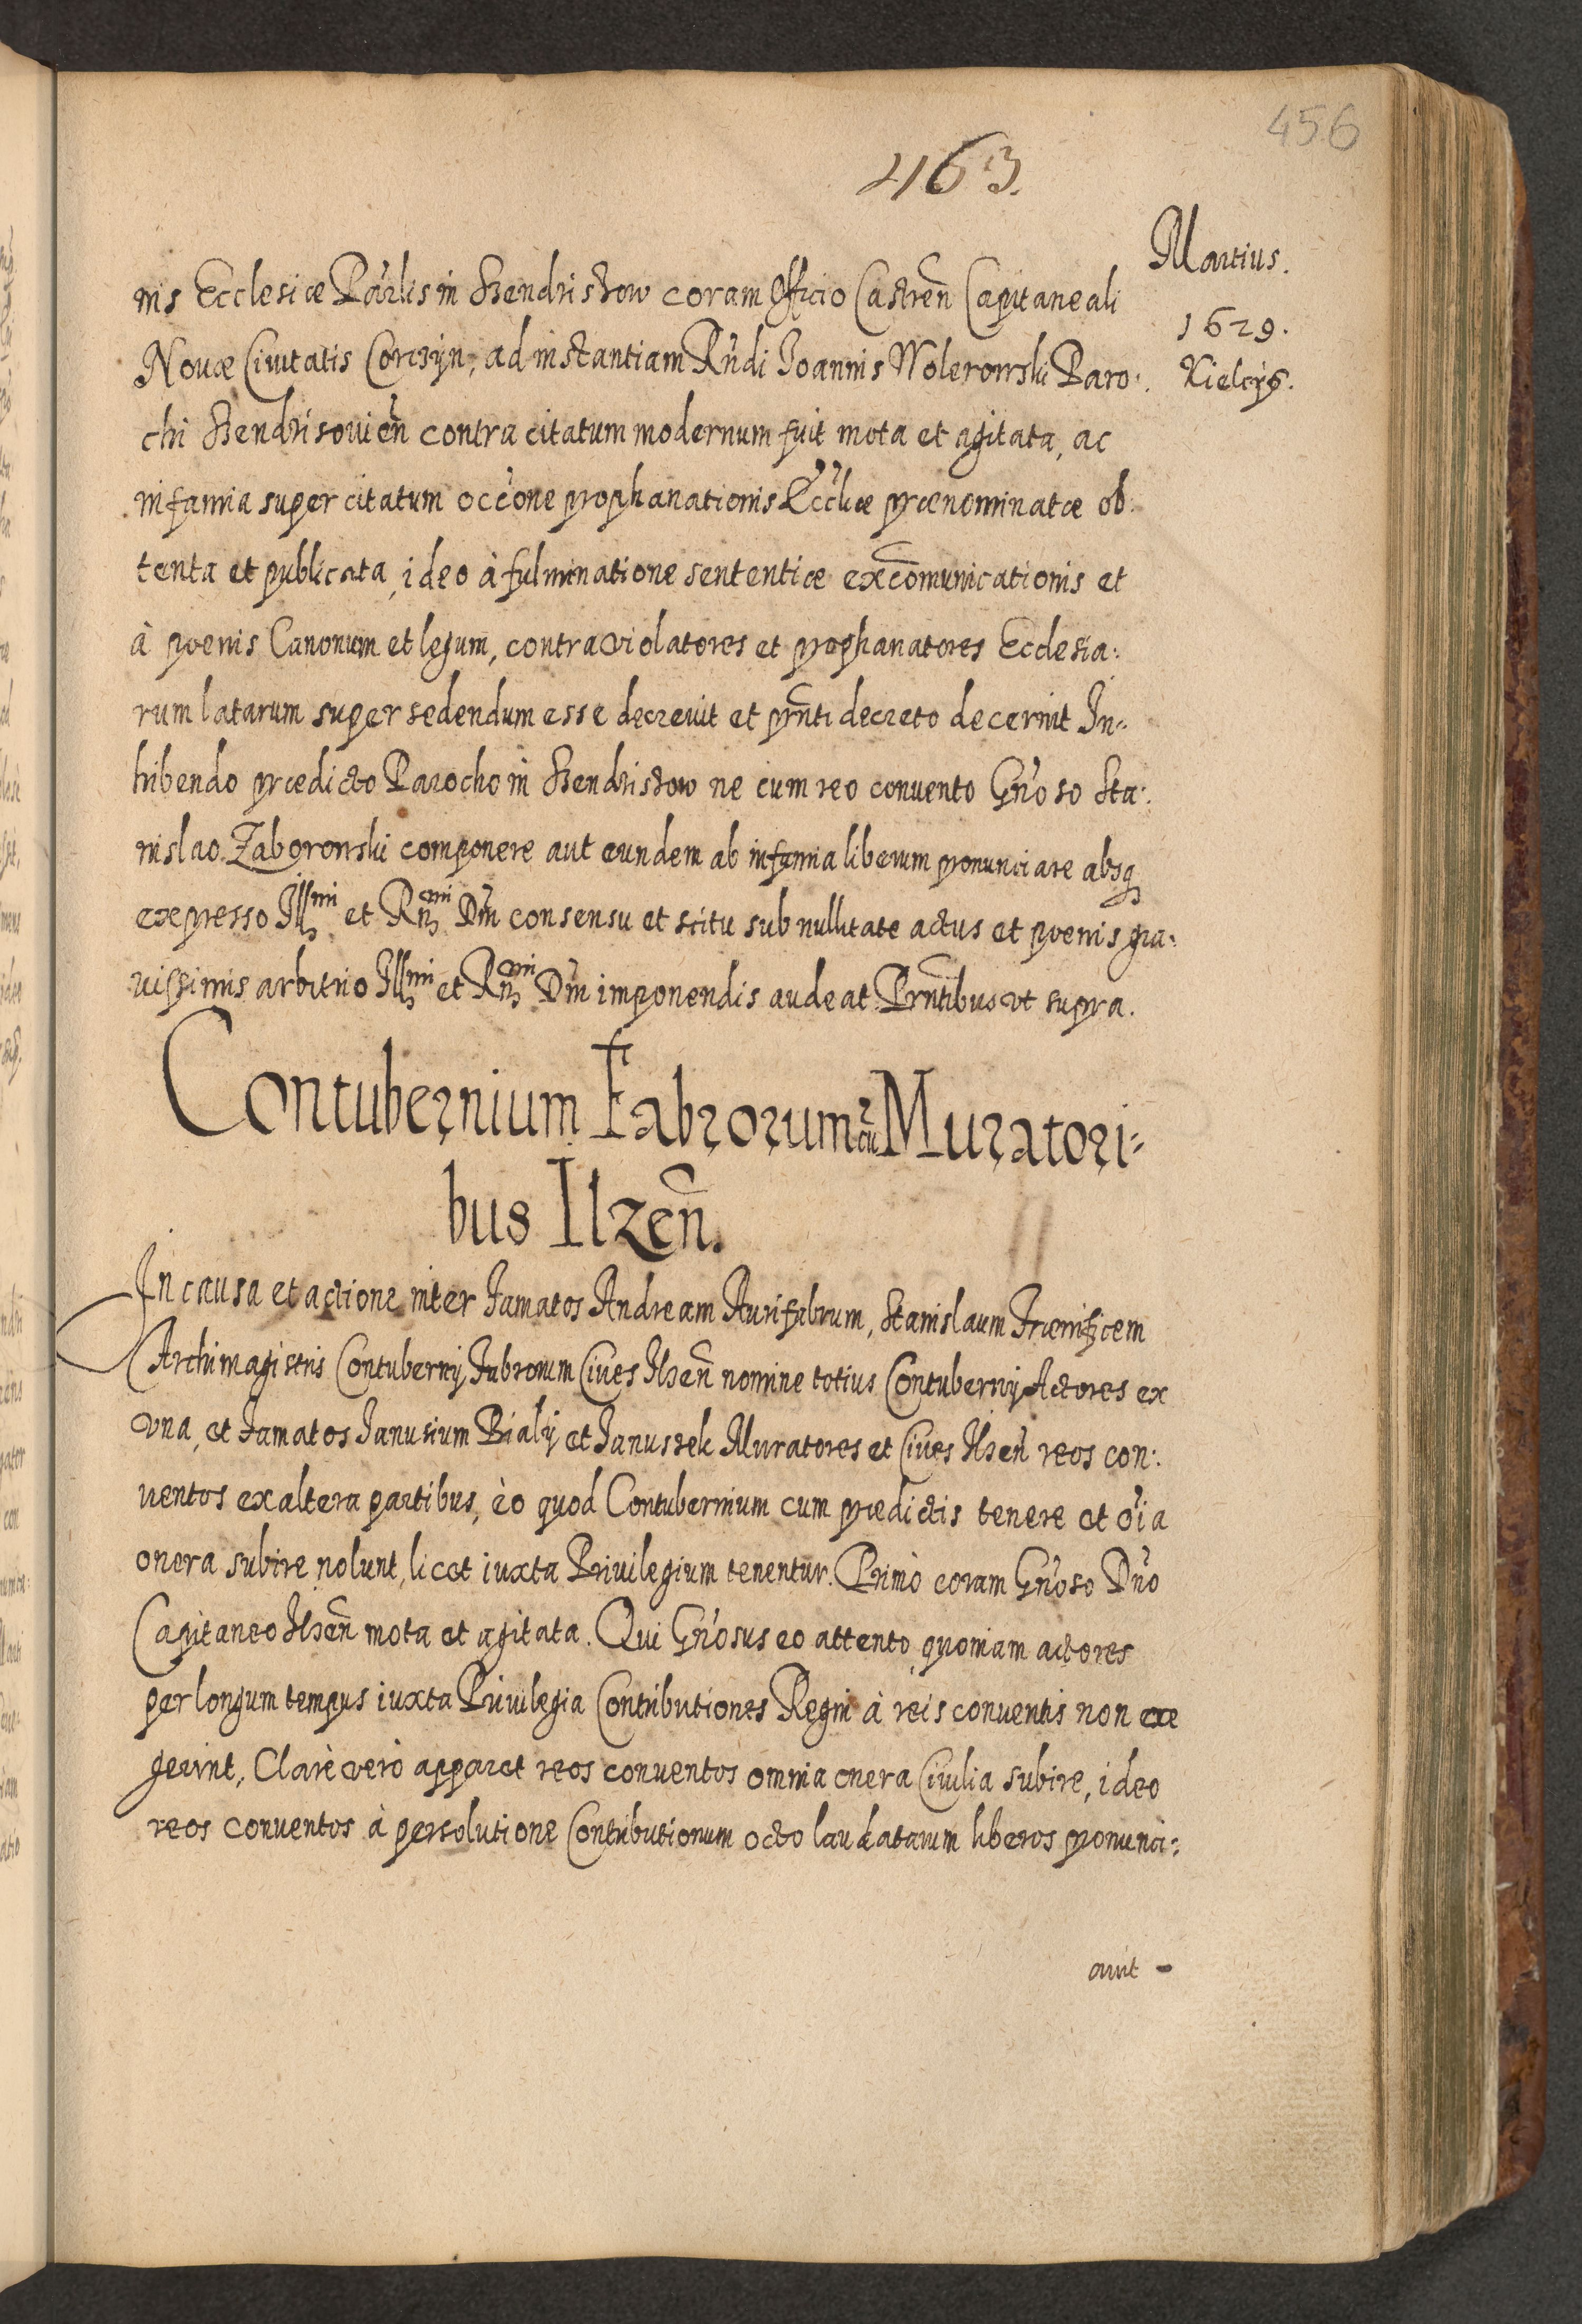 456
463.
Martius.
1629.
Kielcijs.
nis Ecclesiæ Pārlis in Hendrikow coram Officio Castreñ Capitaneali
Nouæ Ciuitatis Corczyn, ad instantiam Rñdi Joannis Wolerowski Paro:
chi contra citatum modernum fuit mota et agitata, ac
infamia super citatum occõne prophanationis Eccliæ prænominatæ ob:
tenta et publicata, ideo à fulminatione sententiæ excõmunicationis et
à poenis Canonum et legum, contra violatores et prophanatores Ecclesia:
rum latarum supersedendum esse decreuit et prñti decreto decernit In:
hibendo prædicto Parocho in ne cum reo conuento Gñoso Sta:
nislao Zaborowski componere aut eundem ab infamia liberum pronunciare absq
expresso Illmi et Rñmi Dñi consensu et scitu sub nullitate actus et poenis gra:
uissimis arbitrio Illmi et Rñmi Dñi imponendis audeat. Prñtibus vt supra.
Contubernium Fabrorum cũ Muratori=
bus Ilzeñ.
In causa et actione inter Famatos Andream Aurifabrum, Stanislaum Frænificem
Archimagistris Contubernij Fabrorum Ciues Ilzeñ nomine totius Contubernij Actores ex
vna, et Famatos Janusium Bialij et Janussek Muratores et Ciues Ilzeñ reos con:
uentos ex altera partibus, èo quod Contubernium cum prædictis tenere et oĩa
onera subire nolunt, licet iuxta Priuilegium tenentur. Primò coram Gñoso Dño
Capitaneo Ilzeñ mota et agitata. Qui Gñosus eo attento quoniam actores
per longum tempus iuxta Priuilegia Contributiones Regni à reis conuentis non exe
gerint, Clarè verò apparet reos conuentos omnia onera Ciuilia subire, ideo
reos conuentos à persolutione Contributionum octo laudatarum liberos pronunci:
auit -